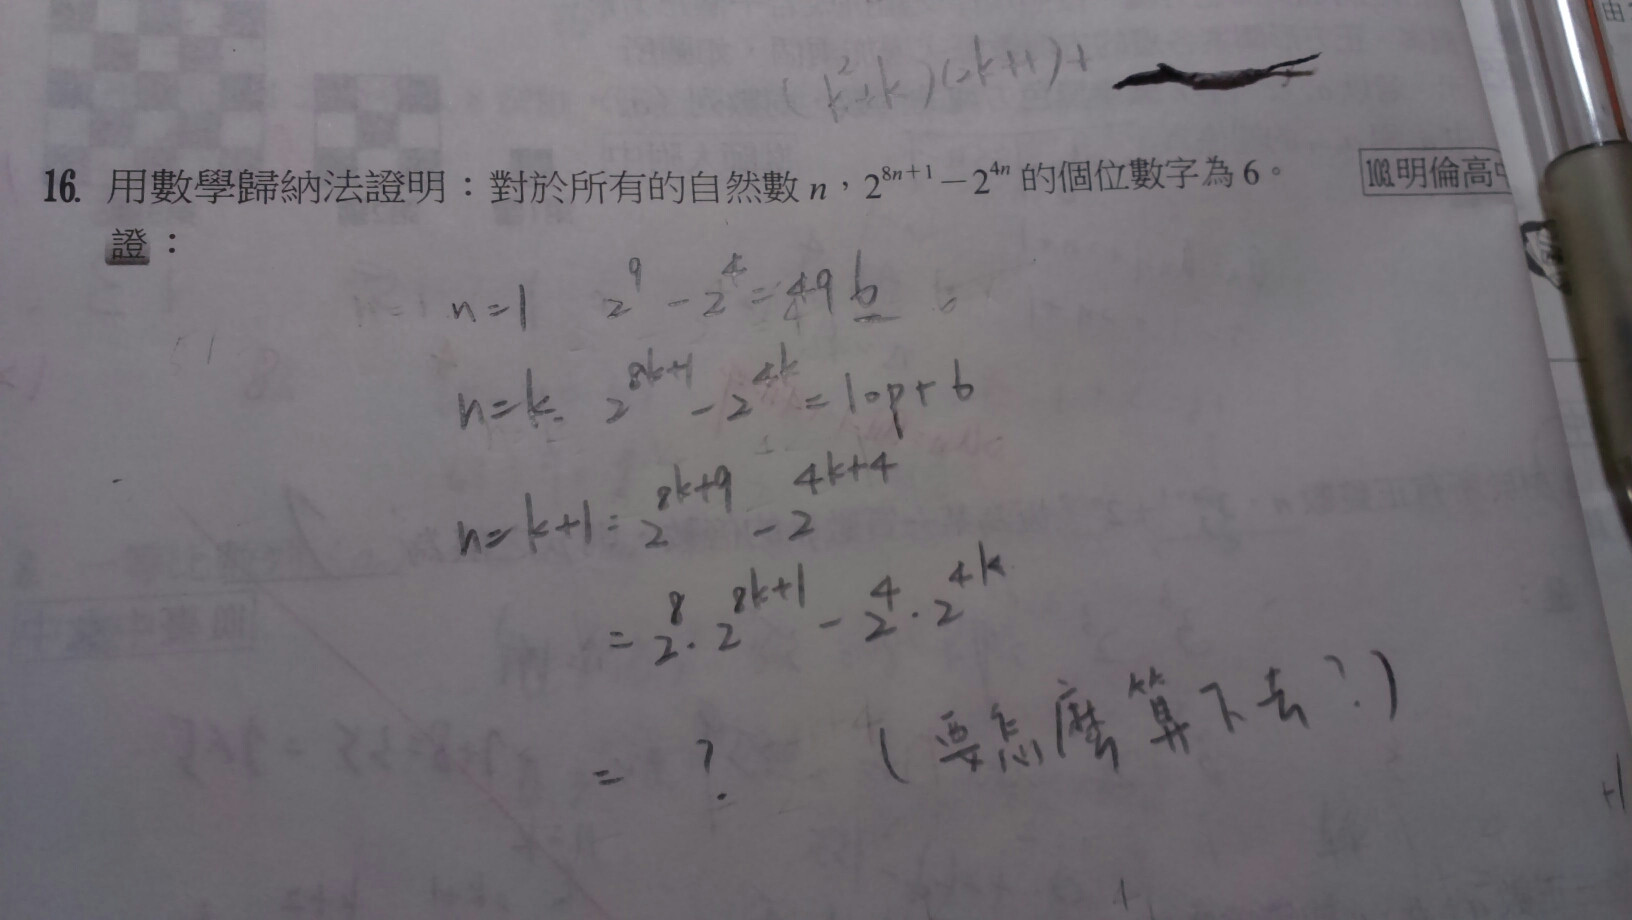 (k²+k)(2k+1)+
16. 用數學歸納法證明：對於所有的自然數 n，2^{8n+1}－2^{4n} 的個位數字為 6。 103.明倫高中
證：
n=1 2^9 - 2^4 = 496
n=k 2^{8k+1} - 2^{4k} = 10p+6
n=k+1 = 2^{8k+9} - 2^{4k+4}
= 2^8 · 2^{8k+1} - 2^4 · 2^{4k}
= ? (要怎麼算下去?)